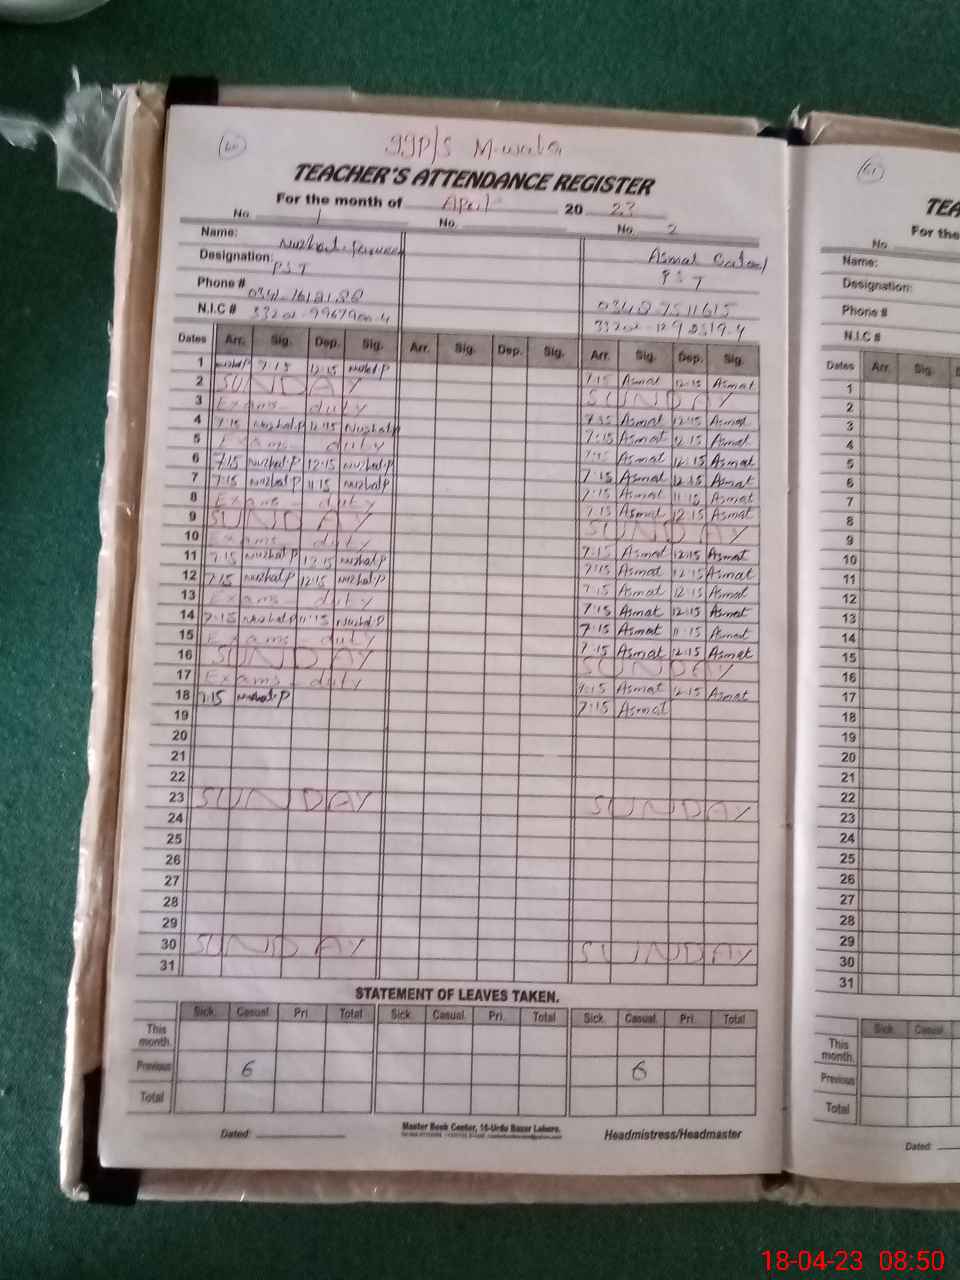 60
TEACHER'S ATTENDANCE REGISTER
For the month of April 20 23
No. 1 No. No. 2
Name: Asmat
Designation: PST PST
Phone # 03487511615
N.I.C #
Dates Arr. Sig. Dep. Sig. Arr. Sig. Dep. Sig. Arr. Sig. Dep. Sig.
1 7:15 12:15 Nuzhat.P 7:15 Asmat 12:15 Asmat
2 SUNDAY SUNDAY
3 Exams duty 7:15 Asmat 12:15 Asmat
4 7:15 Nuzhat.P 12:15 Nuzhat.P 7:15 Asmat 12:15 Asmat
5 Exams duty 7:15 Asmat 12:15 Asmat
6 7:15 Nuzhat.P 12:15 Nuzhat.P 7:15 Asmat 12:15 Asmat
7 7:15 Nuzhat.P 11:15 Nuzhat.P 7:15 Asmat 11:15 Asmat
8 Exams - duty 7:15 Asmat 12:15 Asmat
9 SUNDAY SUNDAY
10 Exams duty 7:15 Asmat 12:15 Asmat
11 7:15 Nuzhat.P 12:15 Nuzhat.P 7:15 Asmat 12:15 Asmat
12 7:15 Nuzhat.P 12:15 Nuzhat.P 7:15 Asmat 12:15 Asmat
13 Exams - duty 7:15 Asmat 12:15 Asmat
14 7:15 Nuzhat.P 11:15 Nuzhat.P 7:15 Asmat 11:15 Asmat
15 Exams - duty 7:15 Asmat 12:15 Asmat
16 SUNDAY SUNDAY
17 Exams - duty 7:15 Asmat 12:15 Asmat
18 7:15 Nuzhat.P 7:15 Asmat
19
20
21
22
23 SUNDAY SUNDAY
24
25
26
27
28
29
30 SUNDAY SUNDAY
31
STATEMENT OF LEAVES TAKEN.
Sick. Casual. Pri. Total Sick. Casual. Pri. Total Sick. Casual. Pri. Total
This month.
Previous 6 6
Total
Dated: Master Book Center, 16-Urdu Bazar Lahore. Headmistress/Headmaster
61
TEA
For the
No.
Name:
Designation:
Phone #
N.I.C #
Dates Arr. Sig.
1
2
3
4
5
6
7
8
9
10
11
12
13
14
15
16
17
18
19
20
21
22
23
24
25
26
27
28
29
30
31
Sick. Casual.
This month.
Previous
Total
Dated:
18-04-23 08:50